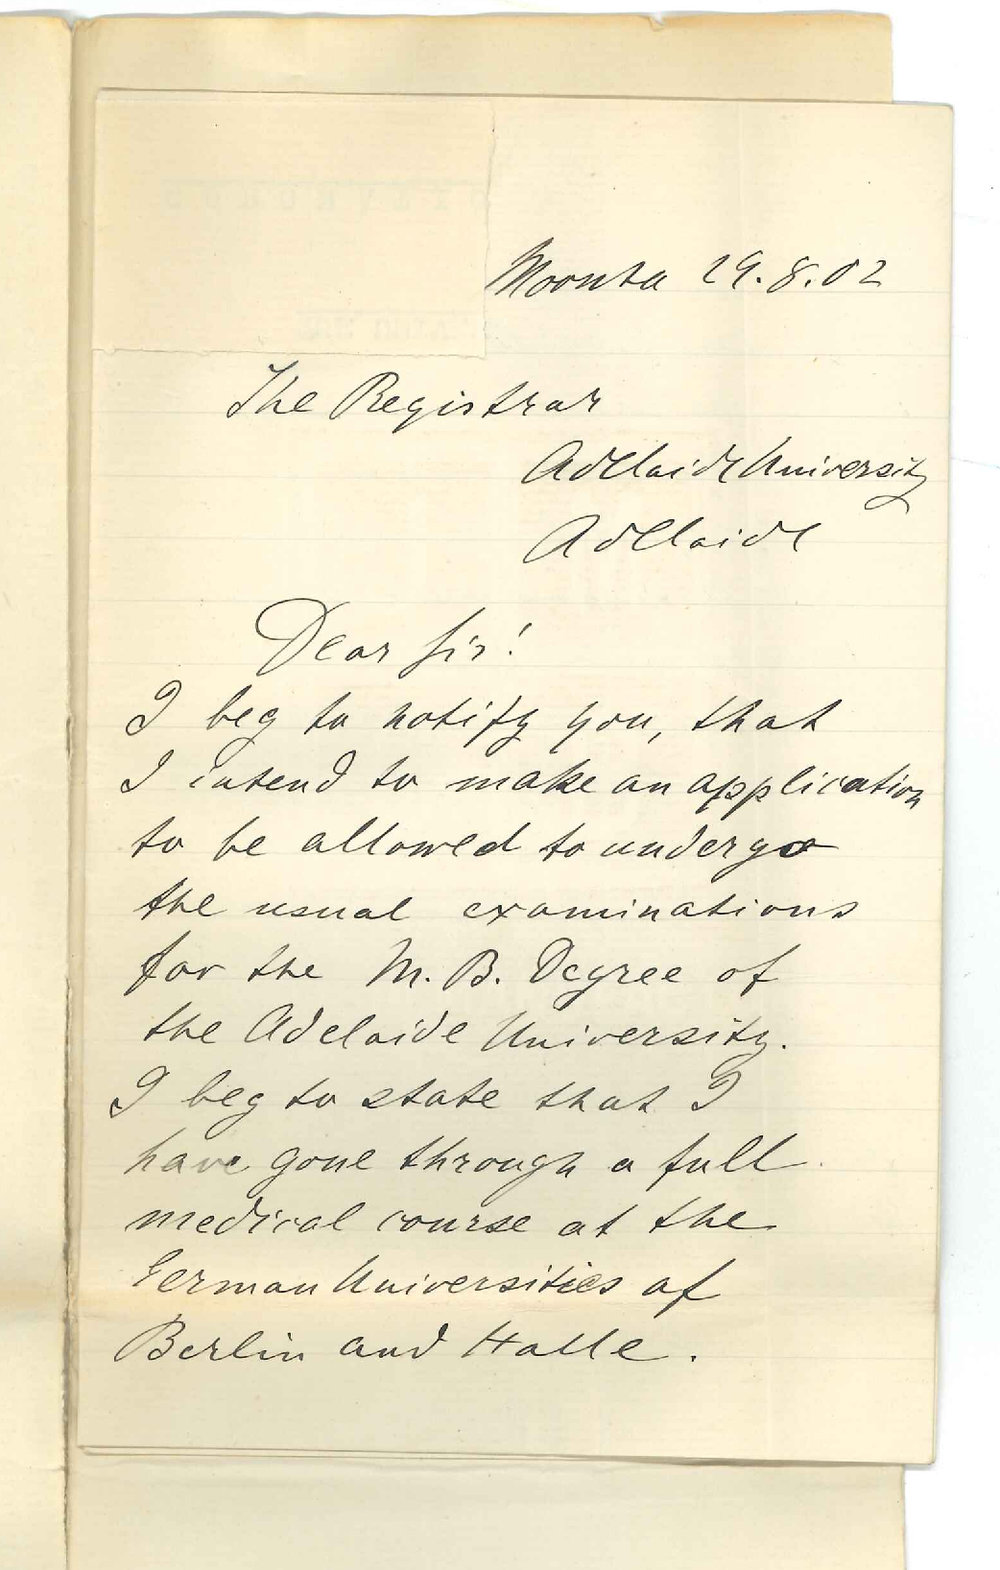 Moonta 29.8.02
The Registrar
Adelaide University
Adelaide
Dear Sir!
I beg to notify you, that
I intend to make an application
to be allowed to undergo
the usual examinations
for the M. B. Degree of
the Adelaide University.
I beg to state that I
have gone through a full
medical course at the
German Universities of
Berlin and Halle.